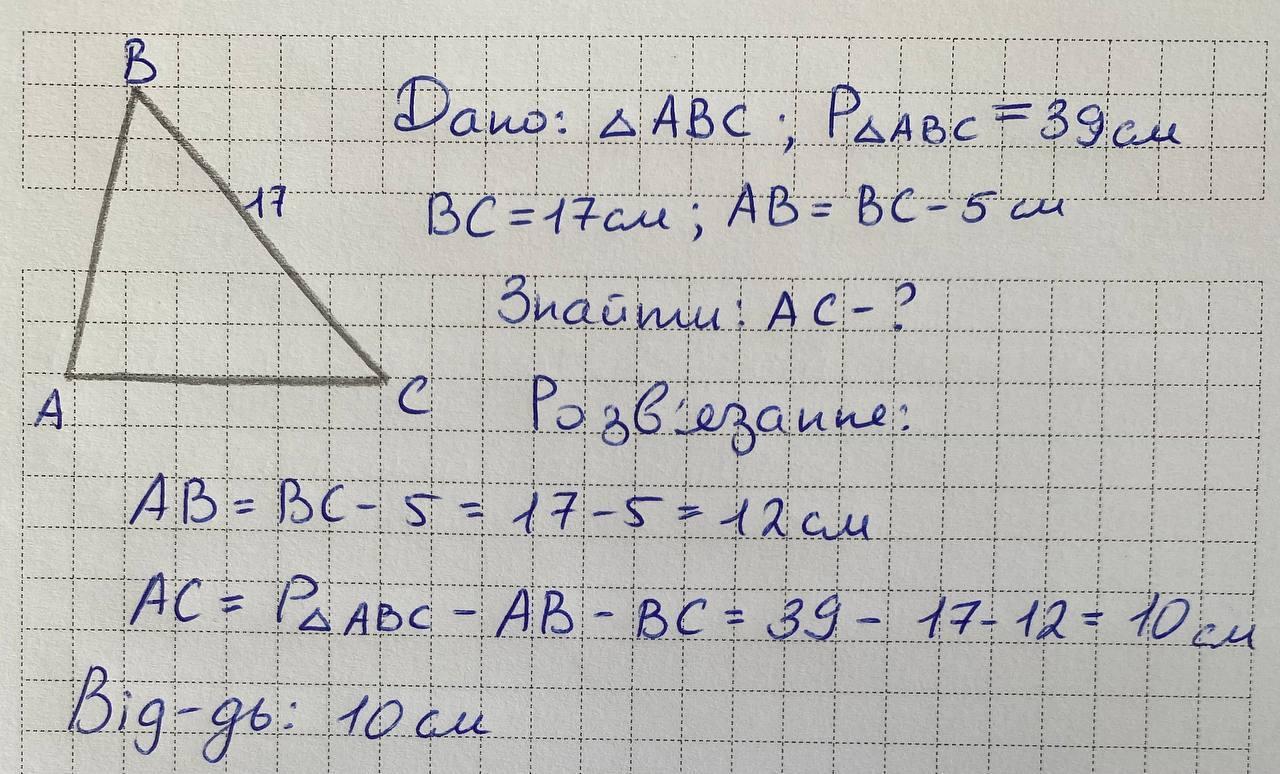 B
Дано: △ ABC ; P△ABC = 39 см
17
BC = 17 см ; AB = BC - 5 см
Знайти: AC - ?
A
C
Розв'езание:
AB = BC - 5 = 17 - 5 = 12 см
AC = P△ABC - AB - BC = 39 - 17 - 12 = 10 см
Від-дь: 10 см